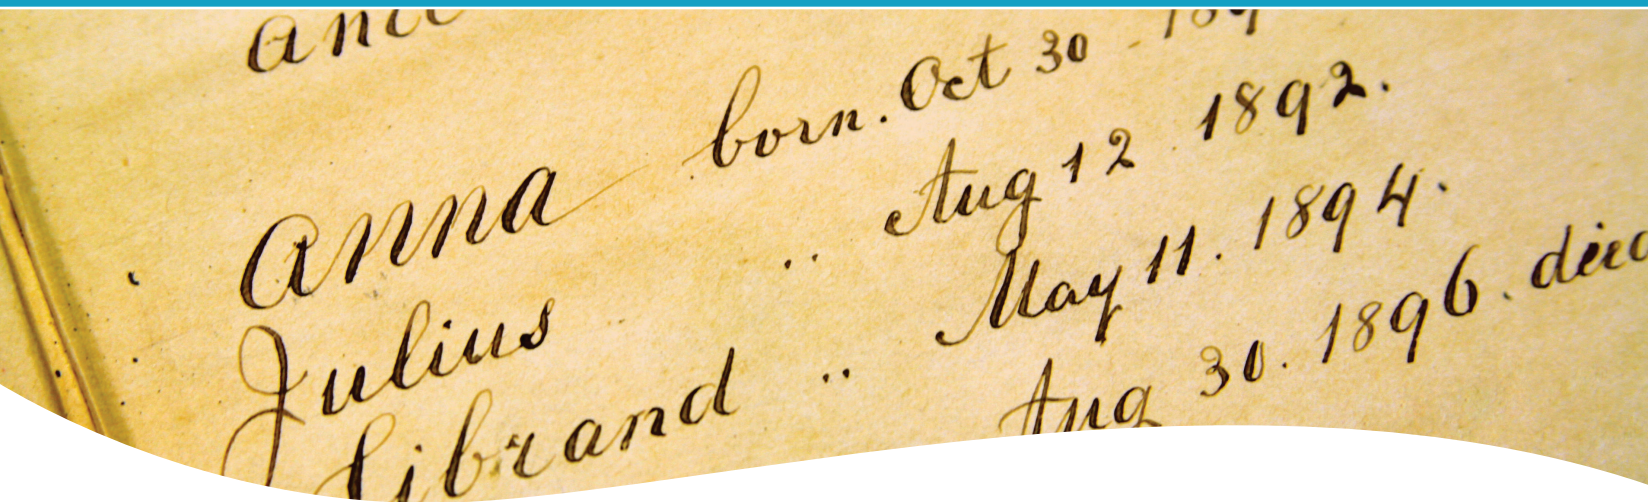 Anna born. Oct 30 - 
Julius " Aug 12 1892.
" May 11. 1894.
Aug 30. 1896. died